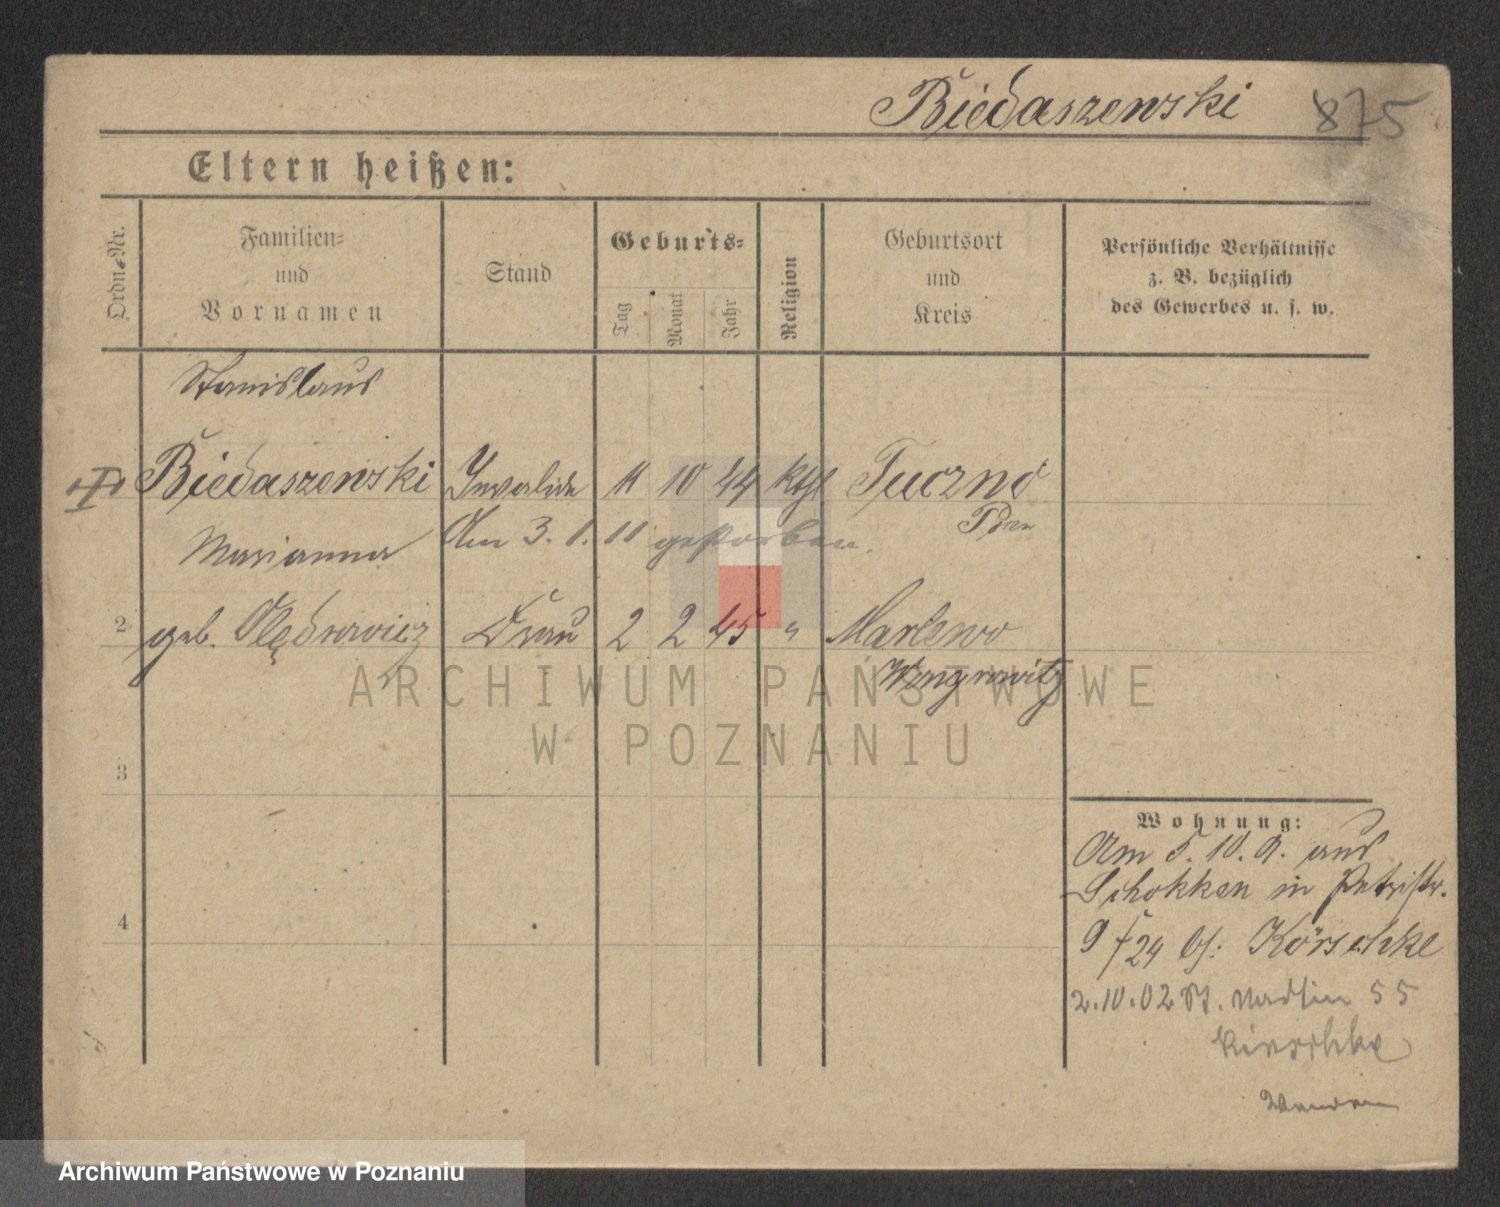 Biedaszewski 875
Eltern heißen:
Ordn.-Nr.
Familien-
und
Vornamen
Stand
Geburts-
Tag
Monat
Jahr
Religion
Geburtsort
und
Kreis
Persönliche Verhältnisse
z. B. bezüglich
des Gewerbes u. s. w.
Stanislaus
Biedaszewski Invalide 11 10 44 kthl Tuczno
Am 3. 1. 11 gestorben. Posen
Marianna
2 geb. Olędrowicz Frau 2 2 45 " Marlewo
Wongrowitz
ARCHIWUM PAŃSTWOWE
W POZNANIU
3
4
Wohnung:
Am 5. 10. 0. aus
Schokken in Petristr.
9 /24 bh: Körschke
2.10.02 St. Martin 55
Kirschke
Archiwum Państwowe w Poznaniu